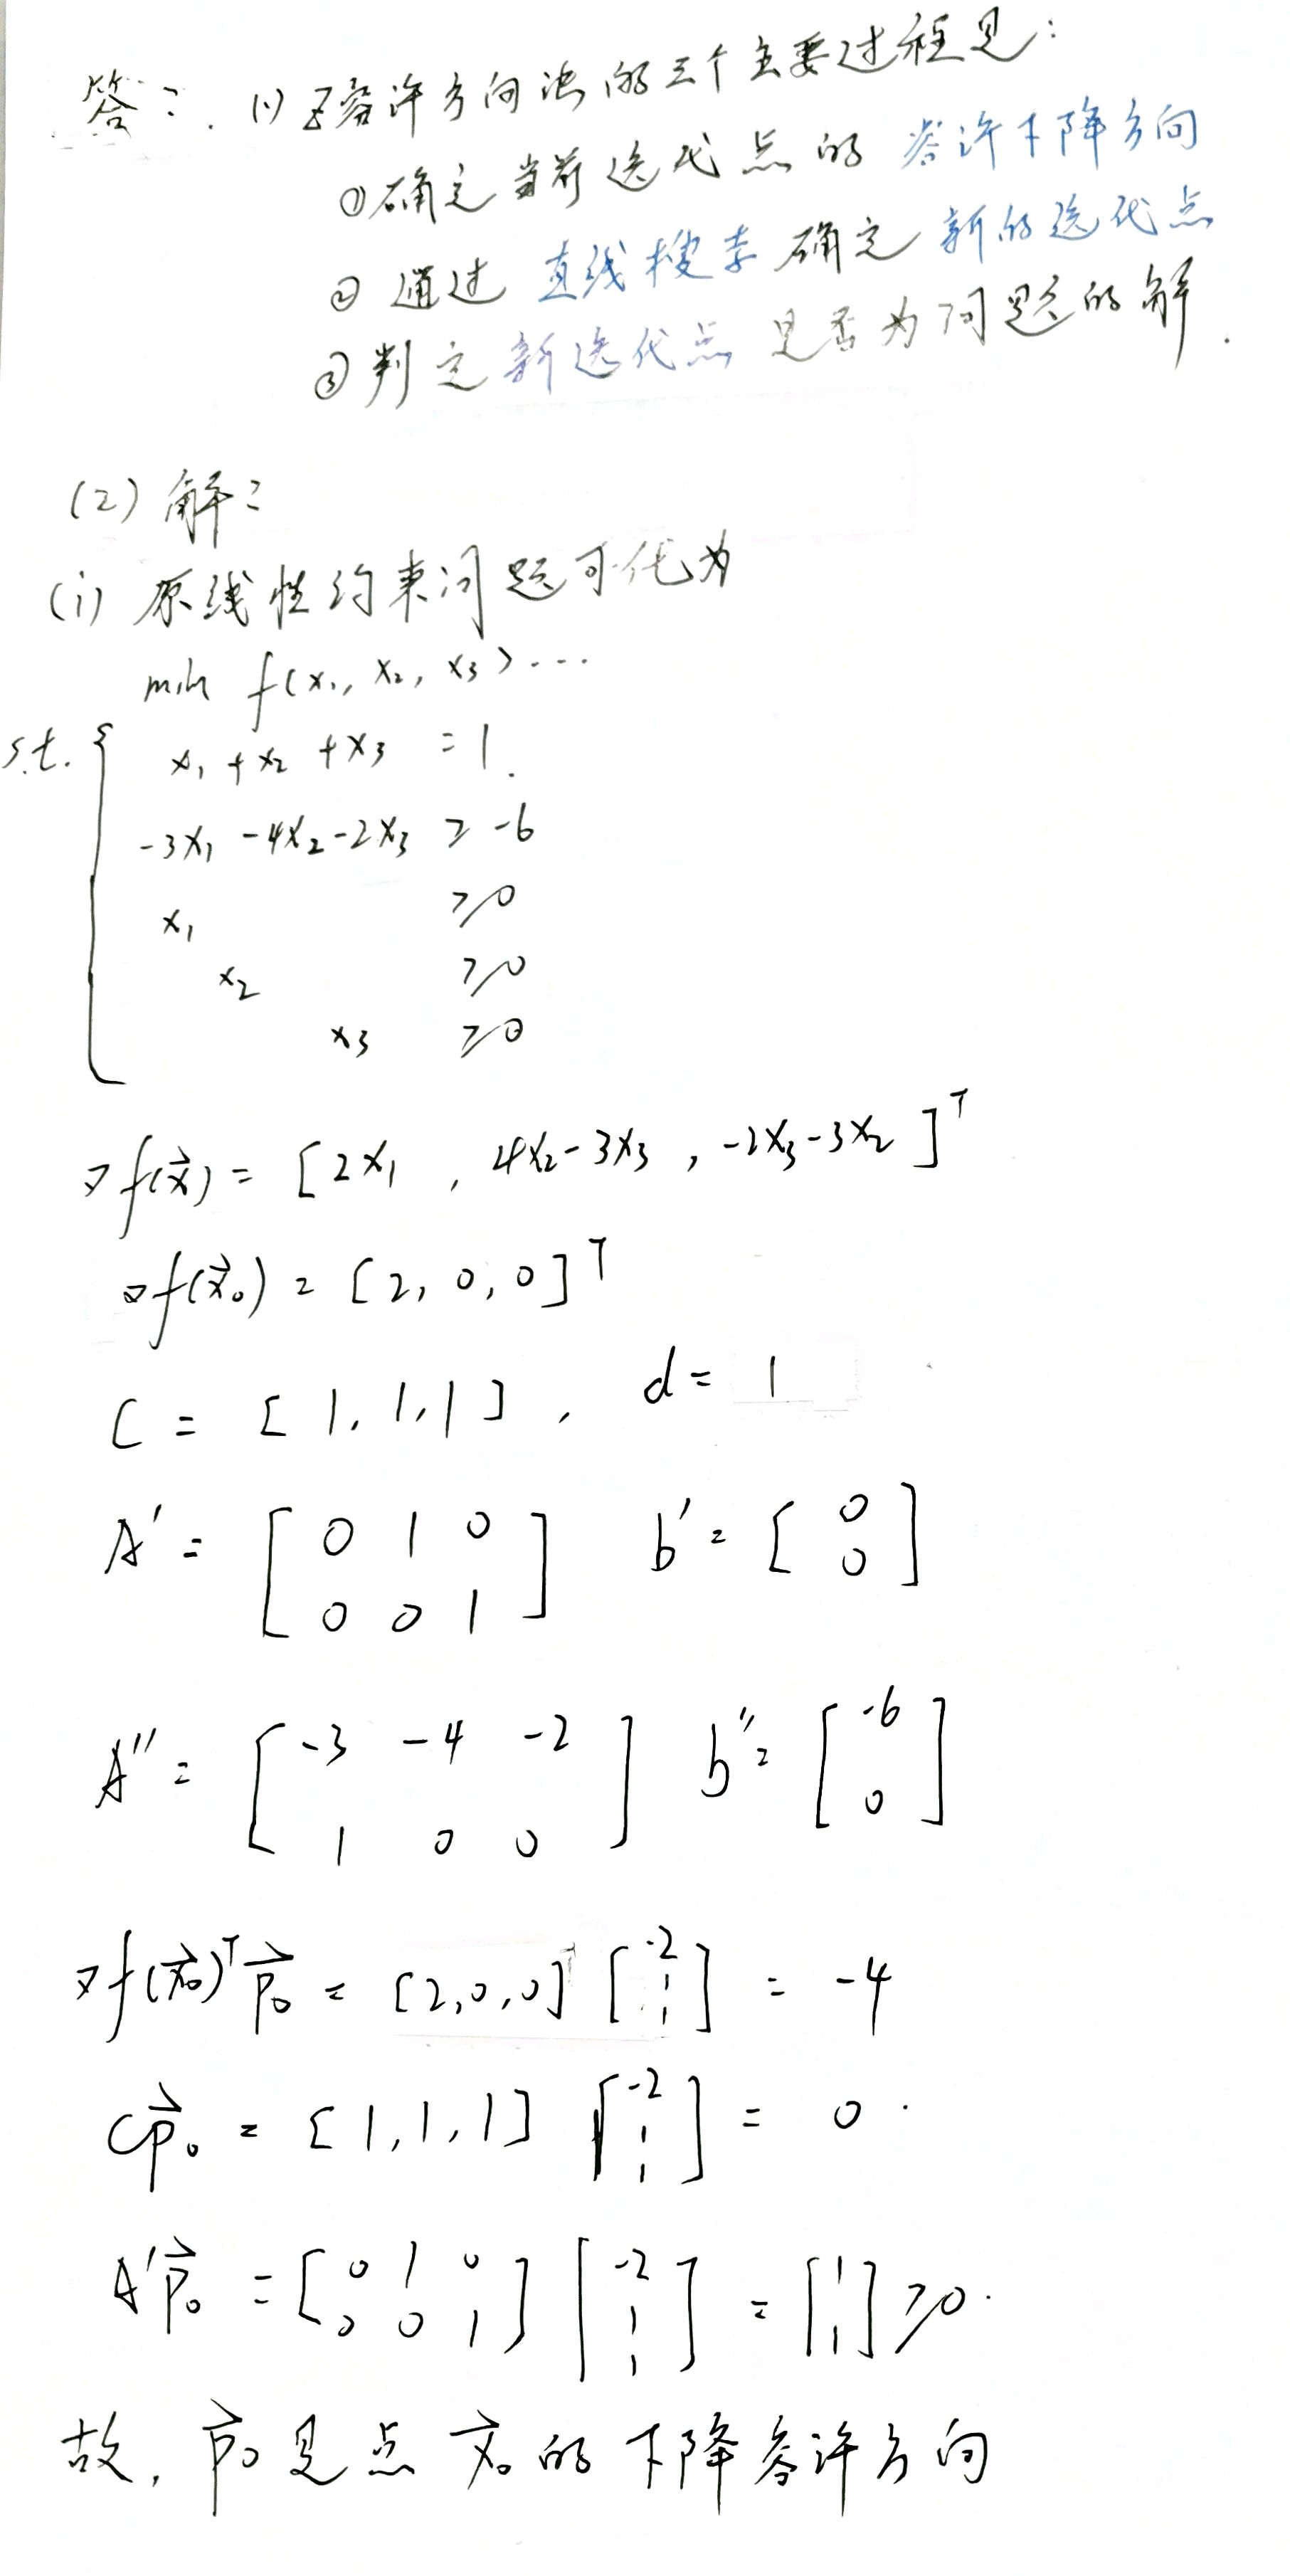 答：(1) Z容许方向法的三个主要过程是：
①确定当前迭代点的容许下降方向
②通过直线搜索确定新的迭代点
③判定新迭代点是否为问题的解.
(2) 解：
(i) 原线性约束问题可化为
min f(x₁, x₂, x₃) ...
s.t. { x₁ + x₂ + x₃ = 1.
-3x₁ -4x₂ -2x₃ ≥ -6
x₁ ≥0
x₂ ≥0
x₃ ≥0
∇f(x⃗) = [2x₁, 4x₂-3x₃, -2x₃-3x₂]ᵀ
∇f(x⃗₀) = [2, 0, 0]ᵀ
C = [1, 1, 1], d = 1
A' = [0 1 0; 0 0 1] b' = [0; 0]
A'' = [-3 -4 -2; 1 0 0] b'' = [-6; 0]
∇f(x⃗₀)ᵀ p⃗₀ = [2,0,0] [-2; 1; 1] = -4
Cp⃗₀ = [1,1,1] [-2; 1; 1] = 0.
A'p⃗₀ = [0 1 0; 0 0 1] [-2; 1; 1] = [1; 1] ≥0.
故, p⃗₀是点x⃗₀的下降容许方向